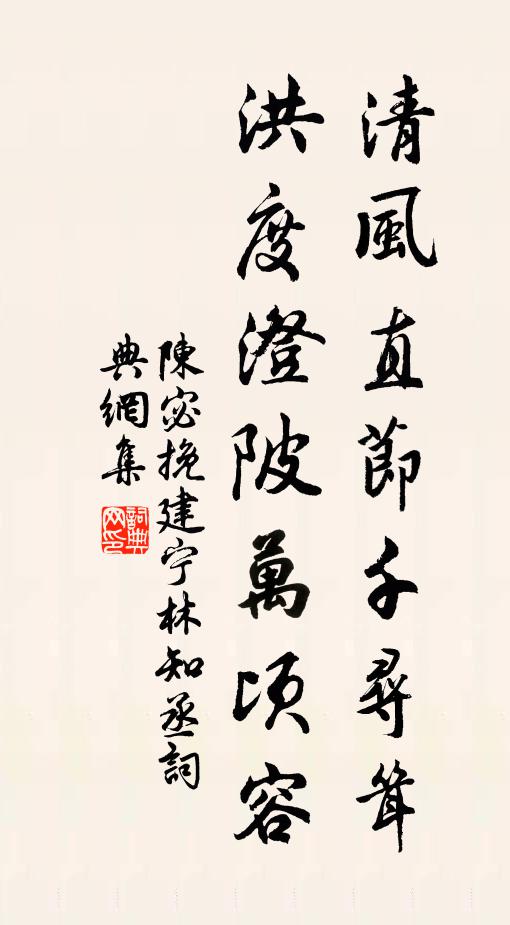 清風直節千尋聳
洪度澄陂萬頃容
陳宓挽建宁林知丞詞
典網集
詞典网印